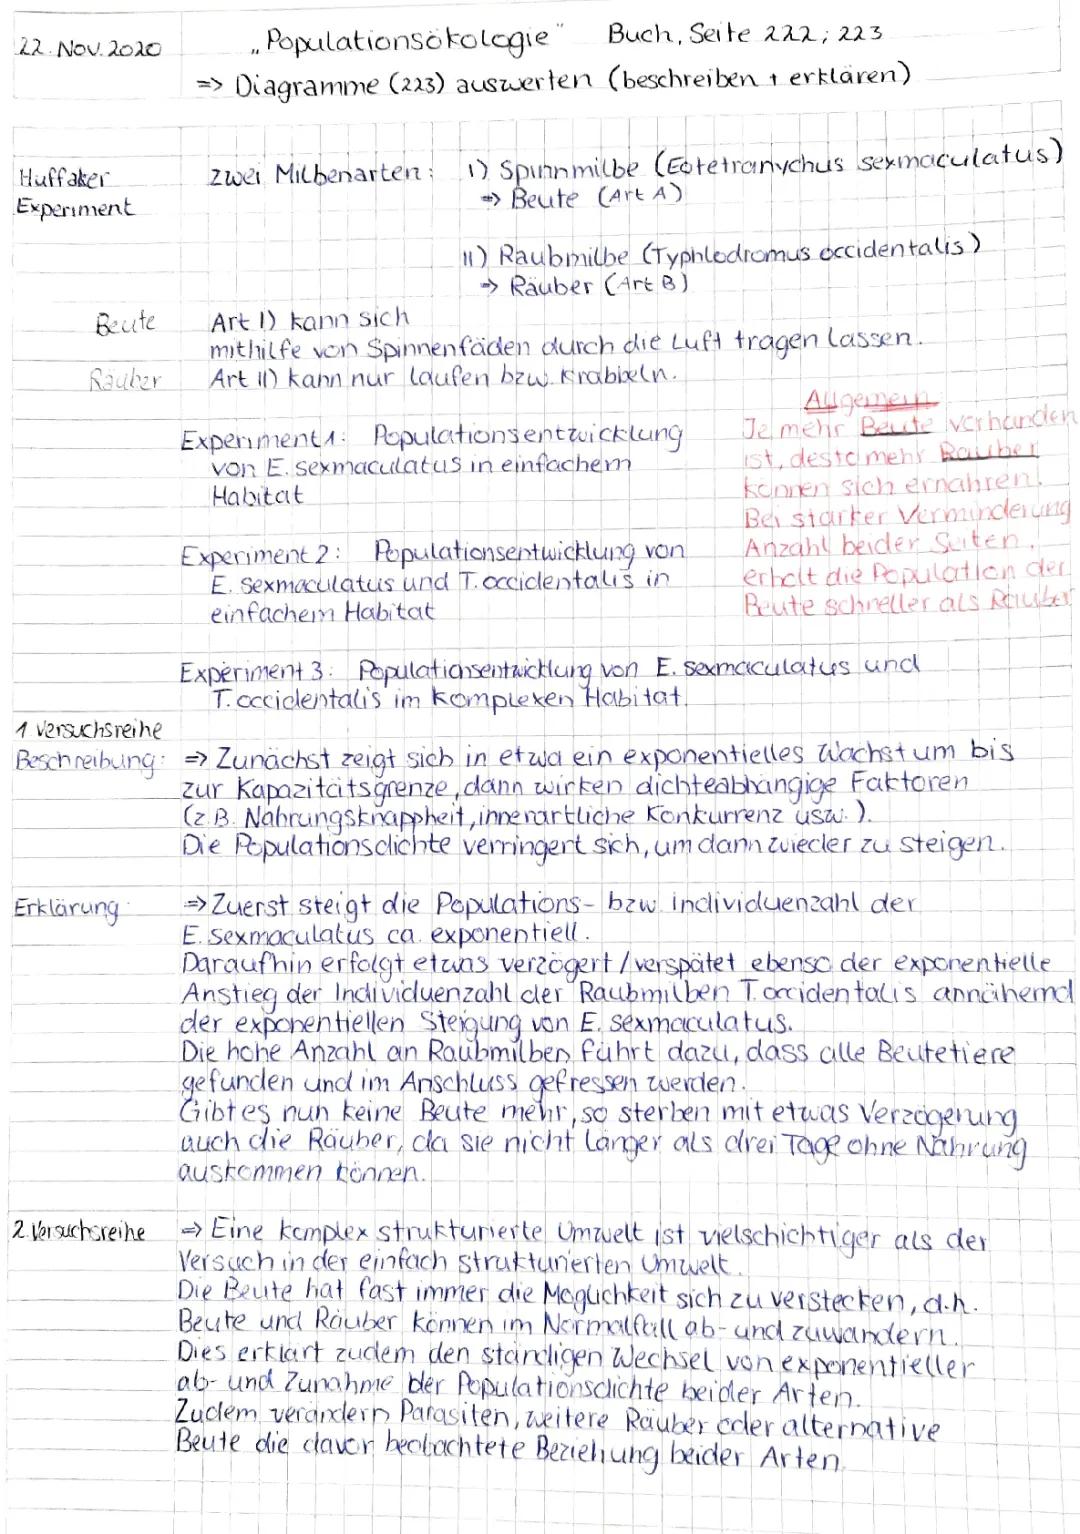 22. Nov. 2020
„Populationsökologie" Buch, Seite 222; 223
=> Diagramme (223) auswerten (beschreiben + erklären)
Huffaker
Experiment
zwei Milbenarten: I) Spinnmilbe (Eotetranychus sexmaculatus)
=> Beute (Art A)
II) Raubmilbe (Typhlodromus occidentalis)
=> Räuber (Art B)
Beute Art I) kann sich
mithilfe von Spinnenfäden durch die Luft tragen lassen.
Räuber Art II) kann nur laufen bzw. krabbeln.
Experiment 1: Populationsentwicklung
von E. sexmaculatus in einfachem
Habitat
Experiment 2: Populationsentwicklung von
E. sexmaculatus und T. occidentalis in
einfachem Habitat
Allgemein
Je mehr Beute vorhanden
ist, desto mehr Räuber
können sich ernähren.
Bei starker Verminderung
Anzahl beider Seiten,
erholt die Population der
Beute schneller als Räuber
Experiment 3: Populationsentwicklung von E. sexmaculatus und
T. occidentalis im komplexen Habitat.
1 Versuchsreihe
Beschreibung: => Zunächst zeigt sich in etwa ein exponentielles Wachstum bis
zur Kapazitätsgrenze, dann wirken dichteabhängige Faktoren
(z.B. Nahrungsknappheit, innerartliche Konkurrenz usw.).
Die Populationsdichte verringert sich, um dann wieder zu steigen.
Erklärung: => Zuerst steigt die Populations- bzw. individuenzahl der
E. sexmaculatus ca. exponentiell.
Daraufhin erfolgt etwas verzögert / verspätet ebenso der exponentielle
Anstieg der Individuenzahl der Raubmilben T. occidentalis annähernd
der exponentiellen Steigung von E. sexmaculatus.
Die hohe Anzahl an Raubmilben führt dazu, dass alle Beutetiere
gefunden und im Anschluss gefressen werden.
Gibt es nun keine Beute mehr, so sterben mit etwas Verzögerung
auch die Räuber, da sie nicht länger als drei Tage ohne Nahrung
auskommen können.
2. Versuchsreihe => Eine komplex strukturierte Umwelt ist vielschichtiger als der
Versuch in der einfach strukturierten Umwelt.
Die Beute hat fast immer die Möglichkeit sich zu verstecken, d.h.
Beute und Räuber können im Normalfall ab- und zuwandern.
Dies erklärt zudem den ständigen Wechsel von exponentieller
ab- und Zunahme der Populationsdichte beider Arten.
Zudem verändern Parasiten, weitere Räuber oder alternative
Beute die davor beobachtete Beziehung beider Arten.